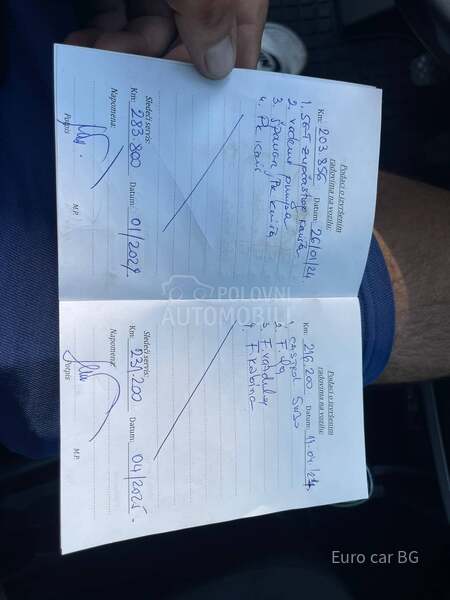 Podaci o izvršenim
radovima na vozilu:
Km: 203 856 Datum: 26/01/24
1. SET zupčastog kaiša
2. vodena pumpa
3. španer, PK kaiša
4. PK kaiš
Sledeći servis:
Km: 283.800 Datum: 01/2029
Napomena:
Potpis
M.P.
Podaci o izvršenim
radovima na vozilu:
Km: 216.200 Datum:
1. CASTROL 5W30
2. F. ulja
3. F. vazduha
4. F. kabina
Sledeći servis:
Km: 231.200 Datum: 04/2025
Napomena:
Potpis
M.P.
POLOVNI
AUTOMOBILI
Euro car BG